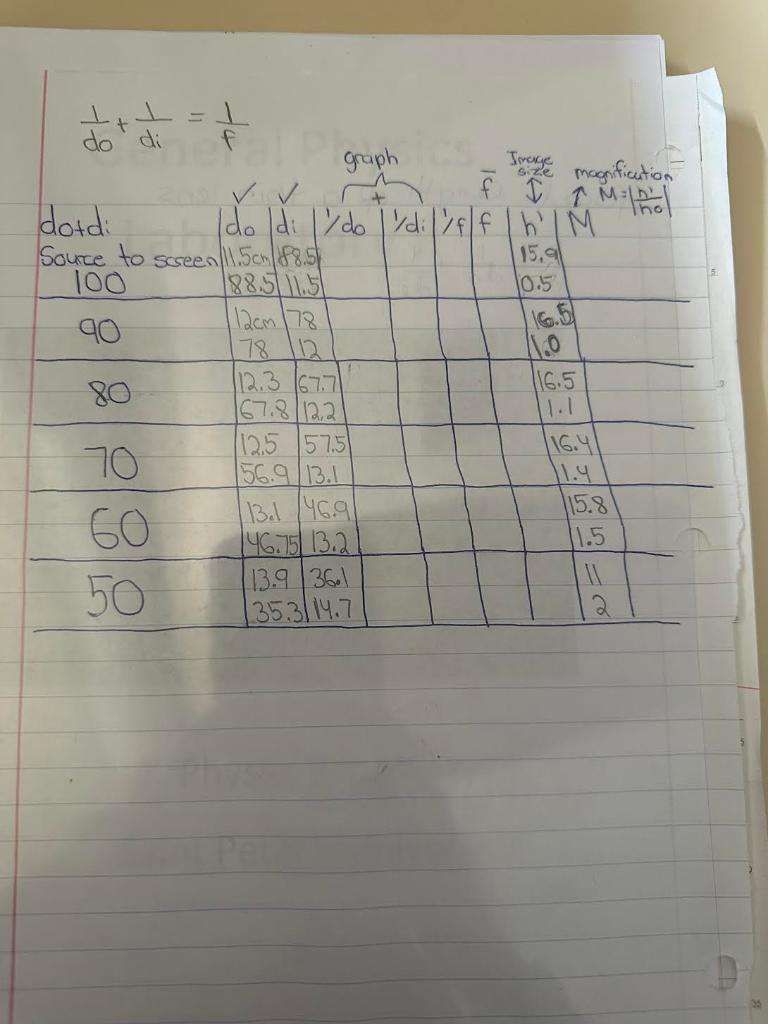 1/do + 1/di = 1/f
graph
+
f̄
Image size
↕
magnification
↑ M = |h'/ho|
✓ ✓
do+di do di 1/do 1/di 1/f f h' M
Source to screen 11.5cm 88.5 15.9
100 88.5 11.5 0.5
12cm 78 16.5
90 78 12 1.0
12.3 67.7 16.5
80 67.8 12.2 1.1
12.5 57.5 16.4
70 56.9 13.1 1.4
13.1 46.9 15.8
60 46.75 13.2 1.5
13.9 36.1 11
50 35.3 14.7 2
General Physics